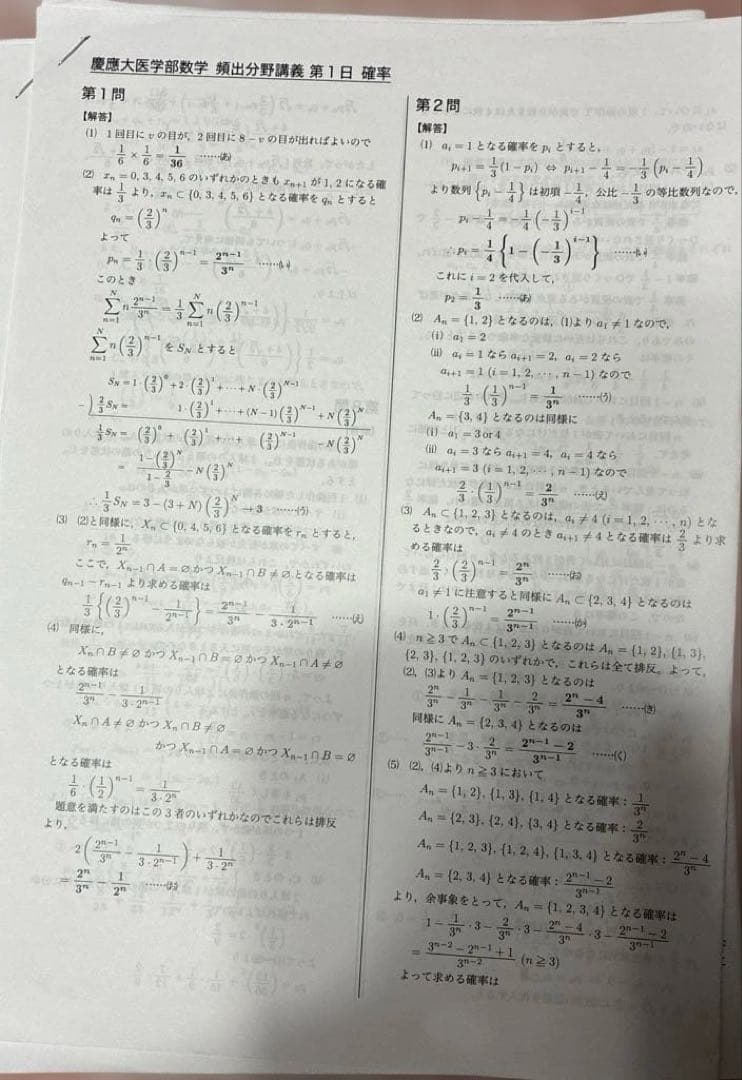 慶應大医学部数学 頻出分野講義 第1日 確率
第1問
【解答】
(1) 1回目に v の目が, 2回目に 8 − v の目が出ればよいので
1/6 × 1/6 = 1/36 ……(あ)
(2) x_n = 0, 3, 4, 5, 6 のいずれかのときも x_{n+1} が 1, 2 になる確
率は 1/3 より, x_n ⊂ {0, 3, 4, 5, 6} となる確率を q_n とすると
q_n = (2/3)^n
よって
p_n = 1/3 · (2/3)^{n−1} = 2^{n−1}/3^n ……(い)
このとき
Σ_{n=1}^{N} n 2^{n−1}/3^n = 1/3 Σ_{n=1}^{N} n (2/3)^{n−1}
Σ_{n=1}^{N} n (2/3)^{n−1} を S_N とすると
S_N = 1·(2/3)^0 + 2·(2/3)^1 + ··· + N·(2/3)^{N−1}
−) 2/3 S_N = 1·(2/3)^1 + ··· + (N−1)(2/3)^{N−1} + N(2/3)^N
1/3 S_N = (2/3)^0 + (2/3)^1 + ··· + (2/3)^{N−1} − N(2/3)^N
= (1−(2/3)^N)/(1−2/3) − N(2/3)^N
∴ 1/3 S_N = 3 − (3 + N)(2/3)^N → 3 ……(う)
(3) (2)と同様に, X_n ⊂ {0, 4, 5, 6} となる確率を r_n とすると,
r_n = 1/2^n
ここで, X_{n−1} ∩ A = ∅ かつ X_{n−1} ∩ B ≠ ∅ となる確率は
q_{n−1} − r_{n−1} より求める確率は
1/3 {(2/3)^{n−1} − 1/2^{n−1}} = 2^{n−1}/3^n − 1/(3·2^{n−1}) ……(え)
(4) 同様に,
X_n ∩ B ≠ ∅ かつ X_{n−1} ∩ B = ∅ かつ X_{n−1} ∩ A ≠ ∅
となる確率は
2^{n−1}/3^n − 1/(3·2^{n−1})
X_n ∩ A ≠ ∅ かつ X_n ∩ B ≠ ∅
かつ X_{n−1} ∩ A = ∅ かつ X_{n−1} ∩ B = ∅
となる確率は
1/6 · (1/2)^{n−1} = 1/(3·2^n)
題意を満たすのはこの3者のいずれかなのでこれらは排反
より,
2(2^{n−1}/3^n − 1/(3·2^{n−1})) + 1/(3·2^n)
= 2^n/3^n − 1/2^n ……(お)
第2問
【解答】
(1) a_i = 1 となる確率を p_i とすると,
p_{i+1} = 1/3 (1 − p_i) ⇔ p_{i+1} − 1/4 = −1/3 (p_i − 1/4)
より数列 {p_i − 1/4} は初項 −1/4, 公比 −1/3 の等比数列なので,
p_i − 1/4 = −1/4 (−1/3)^{i−1}
∴ p_i = 1/4 {1 − (−1/3)^{i−1}} ……(い)
これに i = 2 を代入して,
p_2 = 1/3 ……(あ)
(2) A_n = {1, 2} となるのは, (1)より a_1 ≠ 1 なので,
(i) a_1 = 2
(ii) a_i = 1 なら a_{i+1} = 2, a_i = 2 なら
a_{i+1} = 1 (i = 1, 2, ···, n − 1) なので
1/3 · (1/3)^{n−1} = 1/3^n ……(う)
A_n = {3, 4} となるのは同様に
(i) a_1 = 3 or 4
(ii) a_i = 3 なら a_{i+1} = 4, a_i = 4 なら
a_{i+1} = 3 (i = 1, 2, ···, n − 1) なので
2/3 · (1/3)^{n−1} = 2/3^n ……(え)
(3) A_n ⊂ {1, 2, 3} となるのは, a_i ≠ 4 (i = 1, 2, ···, n) とな
るときなので, a_i ≠ 4 のとき a_{i+1} ≠ 4 となる確率は 2/3 より求
める確率は
2/3 · (2/3)^{n−1} = 2^n/3^n ……(お)
a_1 ≠ 1 に注意すると同様に A_n ⊂ {2, 3, 4} となるのは
1 · (2/3)^{n−1} = 2^{n−1}/3^{n−1} ……(か)
(4) n ≧ 3 で A_n ⊂ {1, 2, 3} となるのは A_n = {1, 2}, {1, 3},
{2, 3}, {1, 2, 3} のいずれかで, これらは全て排反。よって,
(2), (3)より A_n = {1, 2, 3} となるのは
2^n/3^n − 1/3^n − 1/3^n − 2/3^n = (2^n − 4)/3^n ……(き)
同様に A_n = {2, 3, 4} となるのは
2^{n−1}/3^{n−1} − 3 · 2/3^n = (2^{n−1} − 2)/3^{n−1} ……(く)
(5) (2), (4)より n ≧ 3 において
A_n = {1, 2}, {1, 3}, {1, 4} となる確率 : 1/3^n
A_n = {2, 3}, {2, 4}, {3, 4} となる確率 : 2/3^n
A_n = {1, 2, 3}, {1, 2, 4}, {1, 3, 4} となる確率 : (2^n − 4)/3^n
A_n = {2, 3, 4} となる確率 : (2^{n−1} − 2)/3^{n−1}
より, 余事象をとって, A_n = {1, 2, 3, 4} となる確率は
1 − 1/3^n · 3 − 2/3^n · 3 − (2^n − 4)/3^n · 3 − (2^{n−1} − 2)/3^{n−1}
= (3^{n−2} − 2^{n−1} + 1)/3^{n−2} (n ≧ 3)
よって求める確率は